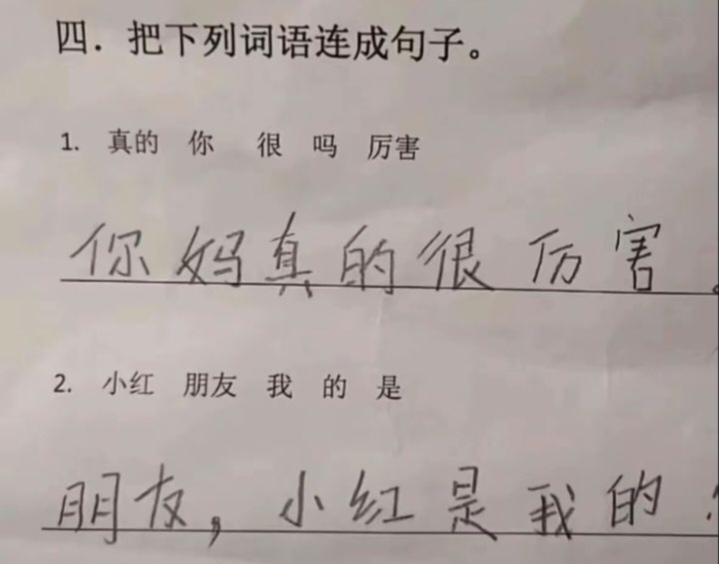 四．把下列词语连成句子。
1. 真的 你 很 吗 厉害
你妈真的很厉害。
2. 小红 朋友 我 的 是
朋友，小红是我的！